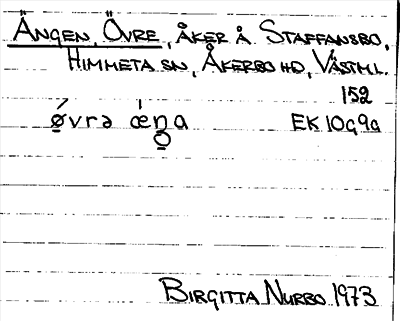 ÄNGEN, ÖVRE, ÅKER Å STAFFANSBO,
HIMMETA SN, ÅKERBO HD, VÄSTML.
152
ǿvrə ǽŋa EK 10G9a
BIRGITTA NURBO 1973